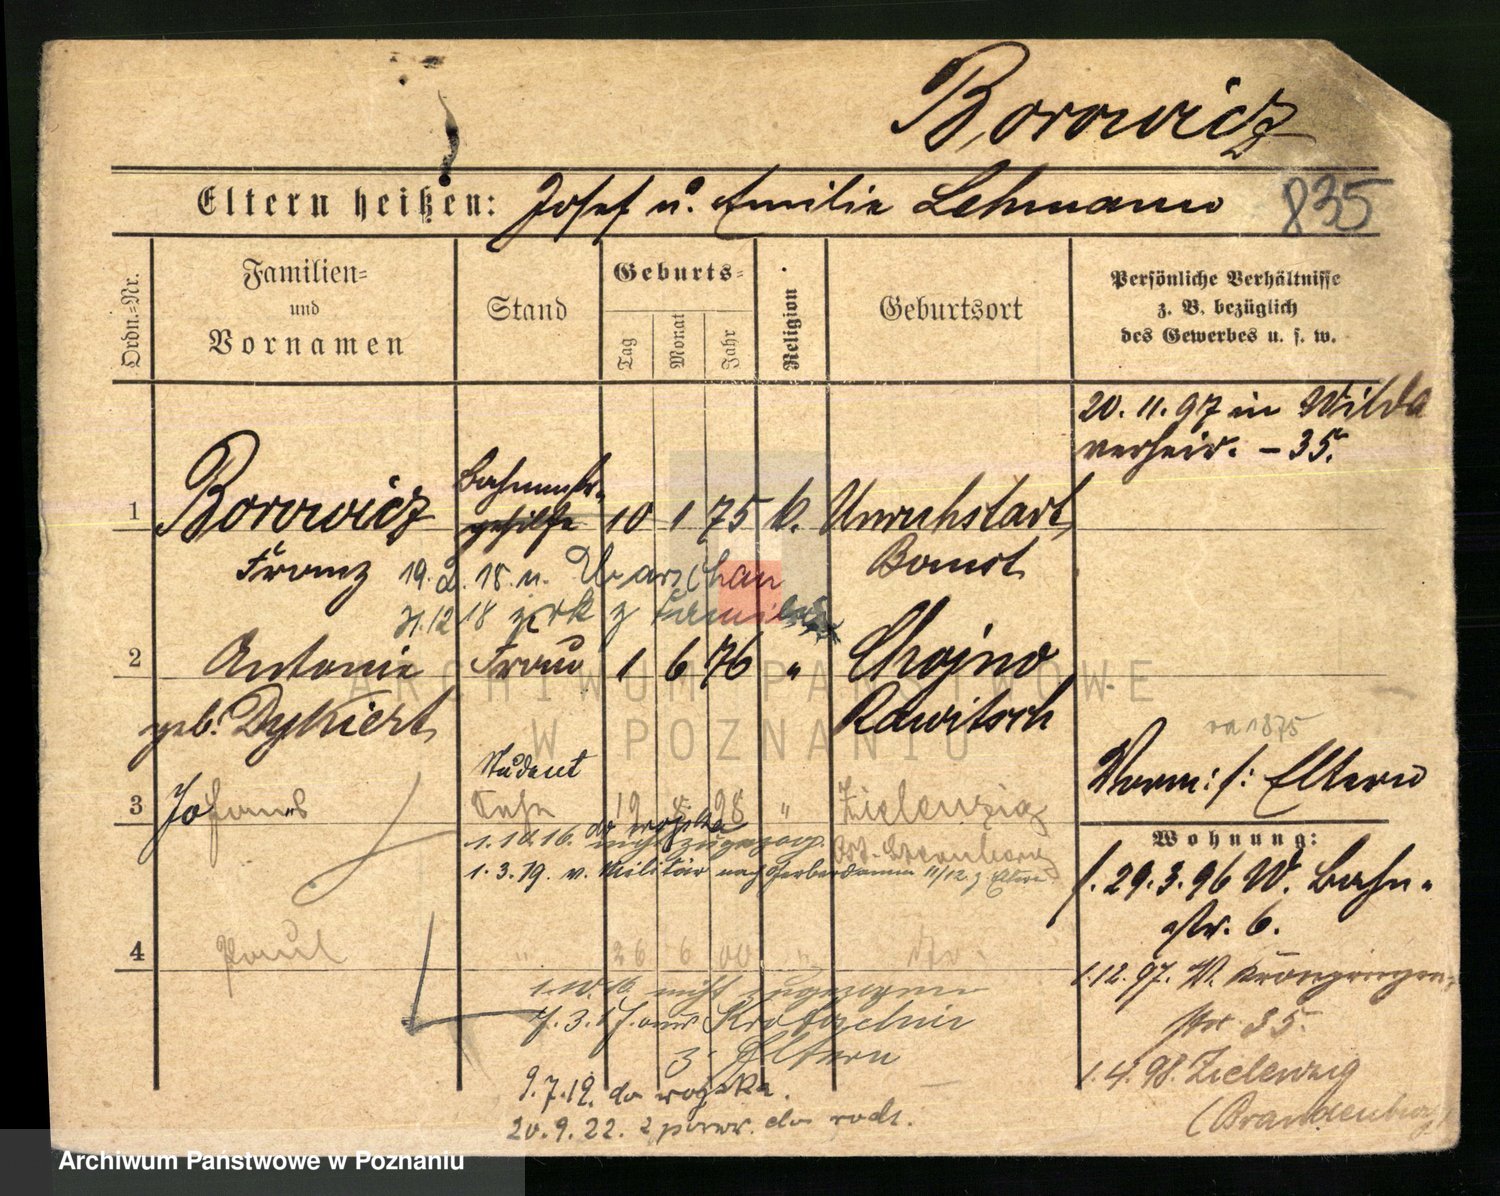 Borowicz
Eltern heißen: Josef u. Emilie Lehmann 835
Ordn.-Nr.
Familien-
und
Vornamen
Stand
Geburts-
Tag
Monat
Jahr
Religion
Geburtsort
Persönliche Verhältnisse
z. B. bezüglich
des Gewerbes u. s. w.
20. 11. 97 in Wilda
verheir. - 35.
1 Borowicz gehilfe 10 1 75 k. Unruhstadt
Franz
Bomst
19. 2. 18. n. Warschau
12 18 zrk z Familie
2 Antonie Frau 1 6 76 " Chojno
geb. Dykiert
Rawitsch
Vorm: s: Eltern
Student
3 Johannes Sohn 12 98 " Zielenzig
1. 10. 16. do wojska nicht zugezog.
Ost-Sternberg
1. 3. 19. v. Militär nach 11/12 z Eltern
Wohnung:
f. 29. 3. 96 W. Bahn-
str. 6.
4 Paul " 26 6 00 " dto.
1. 10. 16 nicht zugezogen
1. 12. 97. W. Kronprinzen-
str 35.
7. 3. 17. aus Krotoschin
z. Eltern
1. 4. 98. Zielenzig
(Brandenburg)
9. 7. 19. do wojska.
20. 9. 22. z powr. do rodz.
ARCHIWUM PAŃSTWOWE
W POZNANIU
Archiwum Państwowe w Poznaniu